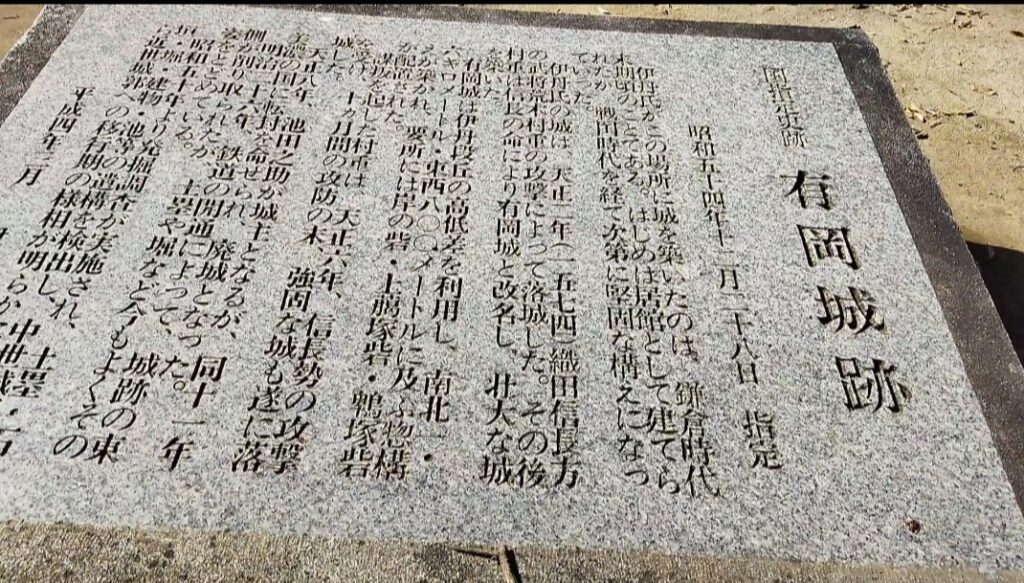 国指定史跡 有岡城跡
昭和五十四年十二月二十八日 指定
伊丹氏がこの場所に城を築いたのは、鎌倉時代
末期頃のことである。はじめは居館として建てら
れたが、戦国時代を経て次第に堅固な構えになっ
ていった。
伊丹氏の城は、天正二年(一五七四)織田信長方
の武将荒木村重の攻撃によって落城した。その後
村重は信長の命により有岡城と改名し、壮大な城
を築いた。
有岡城は伊丹段丘の高低差を利用し、南北一・
六キロメートル・東西八〇〇メートルに及ぶ惣構
えが築かれ、要所には岸の砦・上﨟塚砦・鵯塚砦
が配置された。
謀叛を起した村重は、天正六年、信長勢の攻撃
をうけ、十カ月間の攻防の末、強固な城も遂に落
城した。
天正八年、池田之助が城主となるが、同十一年
美濃の国に転封を命ぜられ、廃城となった。
明治二十六年、鉄道の開通によって、城跡の東
側が削り取られたが、土塁や堀など今もよくその
姿をとどめている。
昭和五十年より発掘調査が実施され、土塁・石
垣・堀・建物・池等の遺構を検出し、中世城
から近世城郭への移行期の様相が明らか
平成四年三月